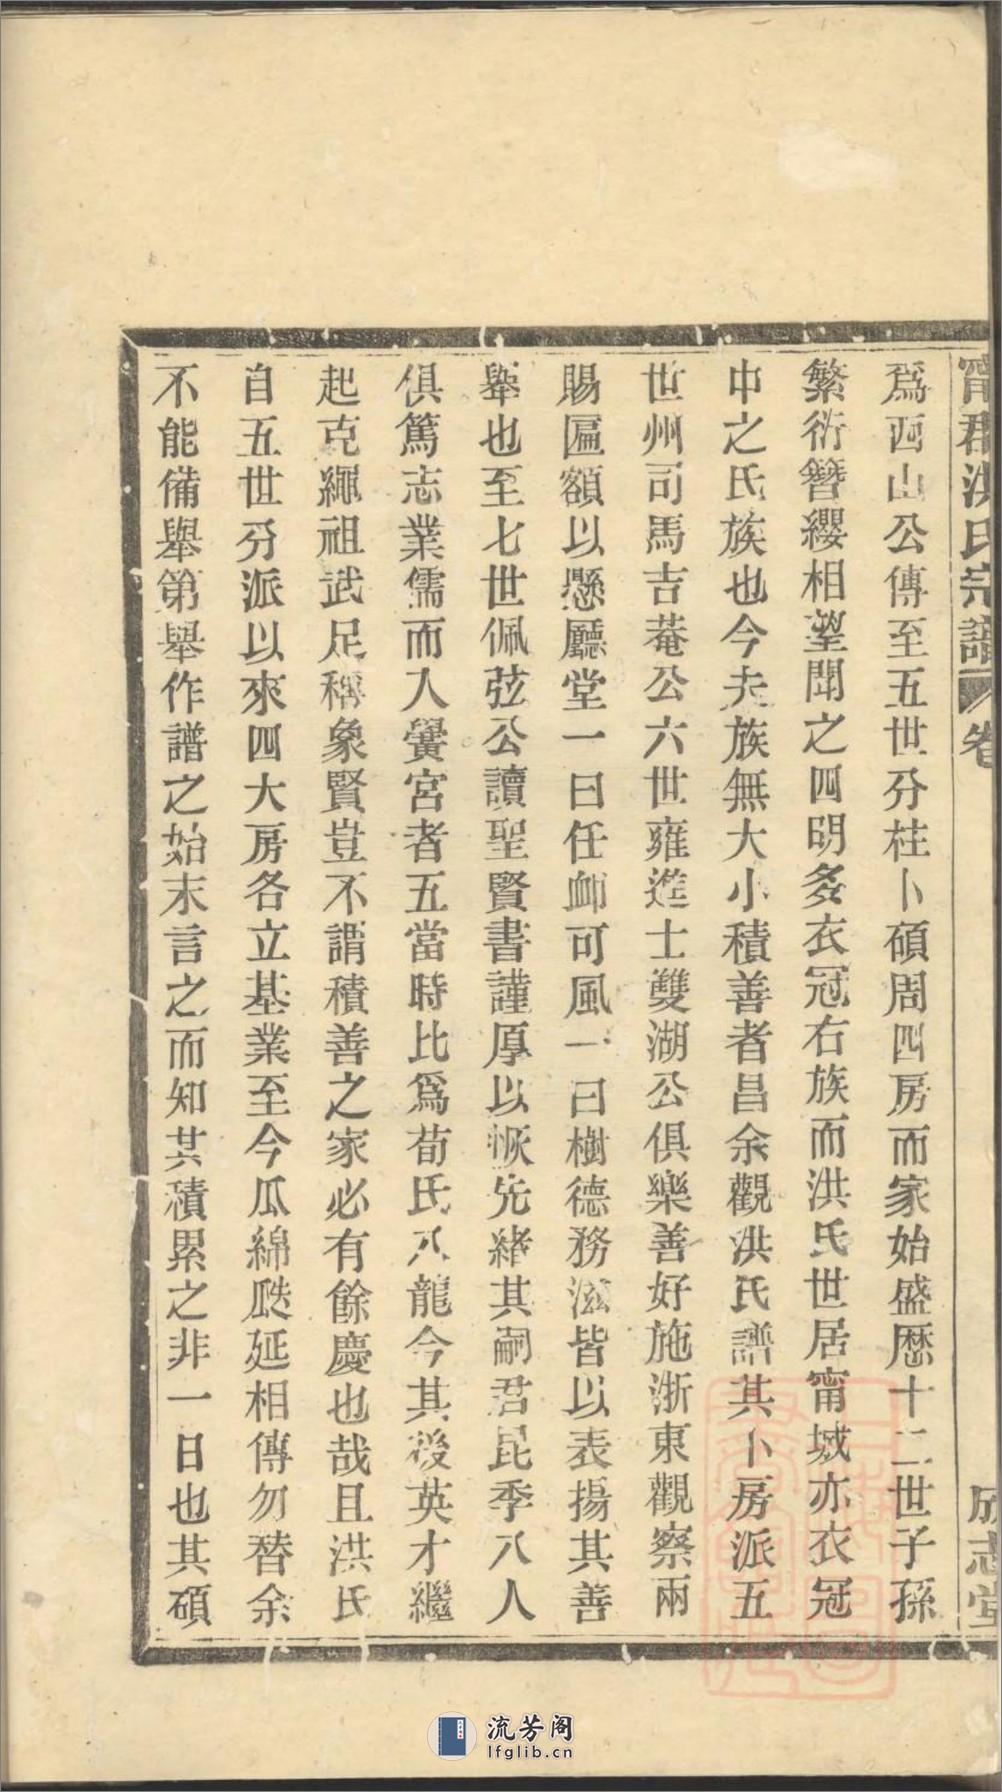 甯郡洪氏宗譜 卷
成志堂
爲西山公傳至五世分柱卜碩周四房而家始盛歷十二世子孫
繁衍簪纓相望聞之四明多衣冠右族而洪氏世居甯城亦衣冠
中之氏族也今夫族無大小積善者昌余觀洪氏譜其卜房派五
世州司馬吉菴公六世雍進士雙湖公俱樂善好施浙東觀察兩
賜匾額以懸廳堂一曰任卹可風一曰樹德務滋皆以表揚其善
舉也至七世佩弦公讀聖賢書謹厚以恢先緒其嗣君昆季八人
俱篤志業儒而入黌宮者五當時比爲荀氏八龍今其後英才繼
起克繩祖武足稱象賢豈不謂積善之家必有餘慶也哉且洪氏
自五世分派以來四大房各立基業至今瓜綿瓞延相傳勿替余
不能備舉第舉作譜之始末言之而知其積累之非一日也其碩
流芳阁
lfglib.cn